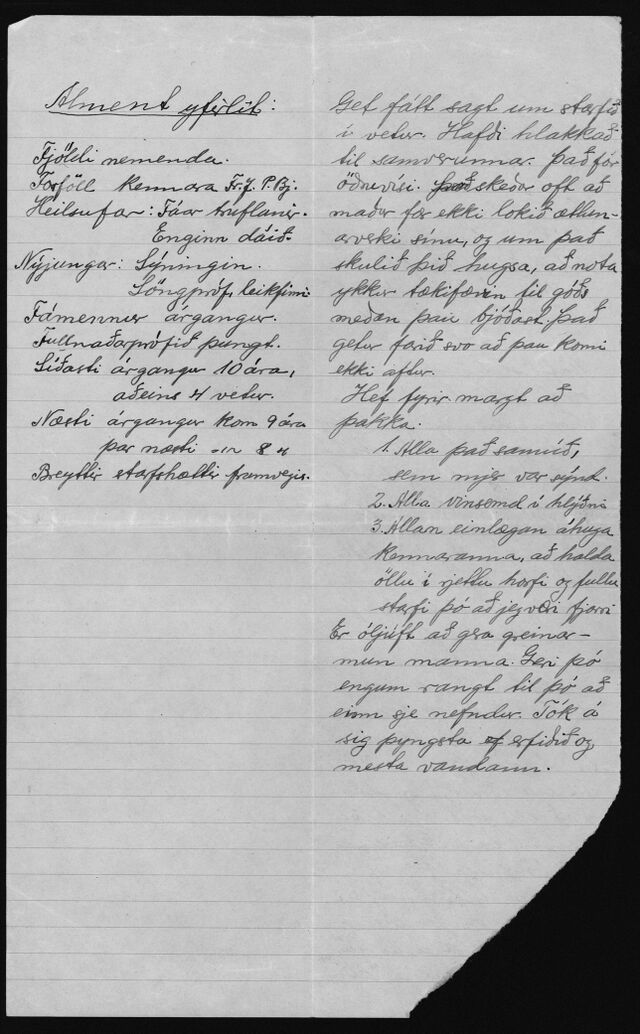 Alment yfirlit:
Fjöldi nemenda.
Forföll kennara Fr. J. P. Bj.
Heilsufar: Fáar truflanir.
Enginn dáið.
Nýjungar: Sýningin.
Söngpróf, leikfimi
Fámennur árgangur.
Fullnaðarprófið þungt.
Síðasti árgangur 10 ára,
aðeins 4 vetur.
Næsti árgangur kom 9 ára
þar næsti -"- 8 "
Breyttir starfshættir framvegis.
Get fátt sagt um starfið
í vetur. Hafði hlakkað
til samverunnar. Það fór
öðruvísi. Það skeður oft að
maður fær ekki lokið ætlun-
arverki sínu, og um það
skulið þið hugsa, að nota
ykkur tækifærin til góðs
meðan þau bjóðast. Það
getur farið svo að þau komi
ekki aftur.
Hef fyrir margt að
þakka.
1. Alla það samúð,
sem mjer var sýnd.
2. Alla vinsemd í hlýðni
3. Allan einlægan áhuga
kennaranna, að halda
öllu í rjettu horfi og fullu
starfi þó að jeg væri fjarri
Er óljúft að gera greinar-
mun manna. Geri þó
engum rangt til þó að
einn sje nefndur. Tók á
sig þyngsta erfiðið og
mesta vandann.